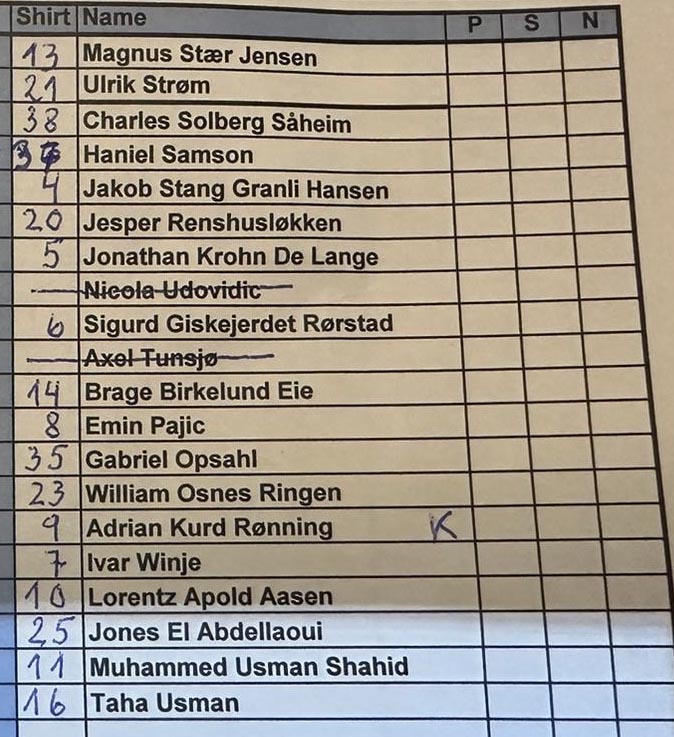 Shirt Name P S N
13 Magnus Stær Jensen
21 Ulrik Strøm
38 Charles Solberg Såheim
Haniel Samson
4 Jakob Stang Granli Hansen
20 Jesper Renshusløkken
5 Jonathan Krohn De Lange
Nicola Udovidic
6 Sigurd Giskejerdet Rørstad
Axel Tunsjø
14 Brage Birkelund Eie
8 Emin Pajic
35 Gabriel Opsahl
23 William Osnes Ringen
9 Adrian Kurd Rønning K
7 Ivar Winje
10 Lorentz Apold Aasen
25 Jones El Abdellaoui
11 Muhammed Usman Shahid
16 Taha Usman